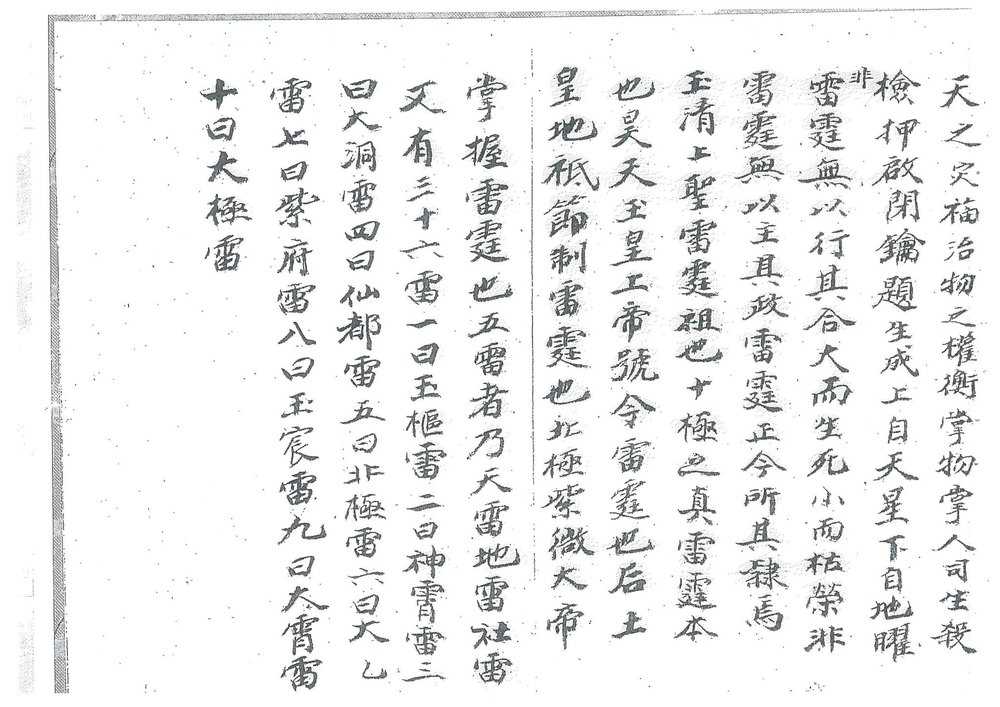 天之灾福治物之權衡掌物掌人司生殺
檢押啟閉鑰題生成上自天星下自地曜非
雷霆無以行其合大而生死小而枯榮非
雷霆無以主其政雷霆正令所其隸焉
玉清上聖雷霆祖也十極之真雷霆本
也昊天玉皇上帝號令雷霆也后土
皇地祇節制雷霆也北極紫微大帝
掌握雷霆也五雷者乃天雷地雷社雷
又有三十六雷一曰玉樞雷二曰神霄雷三
曰大洞雷四曰仙都雷五曰北極雷六曰太乙
雷七曰紫府雷八曰玉宸雷九曰太霄雷
十曰太極雷